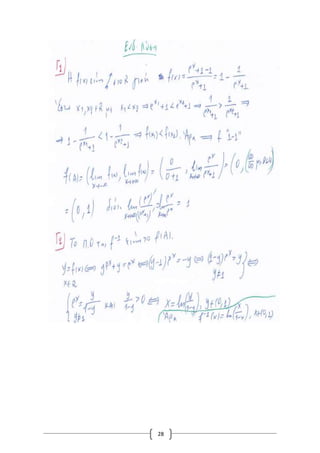 Γ1
Η f(x) είναι ↑ στο ℝ γιατί f(x) = (e^x+1-1)/(e^x+1) = 1 - 1/(e^x+1)
x1, x2 ∈ ℝ με x1 < x2 ⇒ e^x1+1 < e^x2+1 ⇒ 1/(e^x1+1) > 1/(e^x2+1) ⇒
⇒ 1 - 1/(e^x1+1) < 1 - 1/(e^x2+1) ⇒ f(x1) < f(x2). Άρα ⇒ f "1-1"
f(A) = (lim x→-∞ f(x), lim x→+∞ f(x)) = (0/(0+1), lim x→+∞ e^x/(e^x+1)) = (0,
= (0,1) διότι lim x→+∞ (e^x)'/(e^x+1)' = lim x→+∞ e^x/e^x = 1
Το Π.Ο της f^-1 είναι το f(A).
y = f(x) ⇔ ye^x + y = e^x ⇔ (y-1)e^x = -y ⇔ (1-y)e^x = y ⇔
x∈ℝ y≠1
e^x = y/(1-y) και y/(1-y) > 0 ⇔ x = ln(y/(1-y)), y∈(0,1)
y≠1 Άρα f^-1(x) = ln(x/(1-x)), x∈(0,1)
28